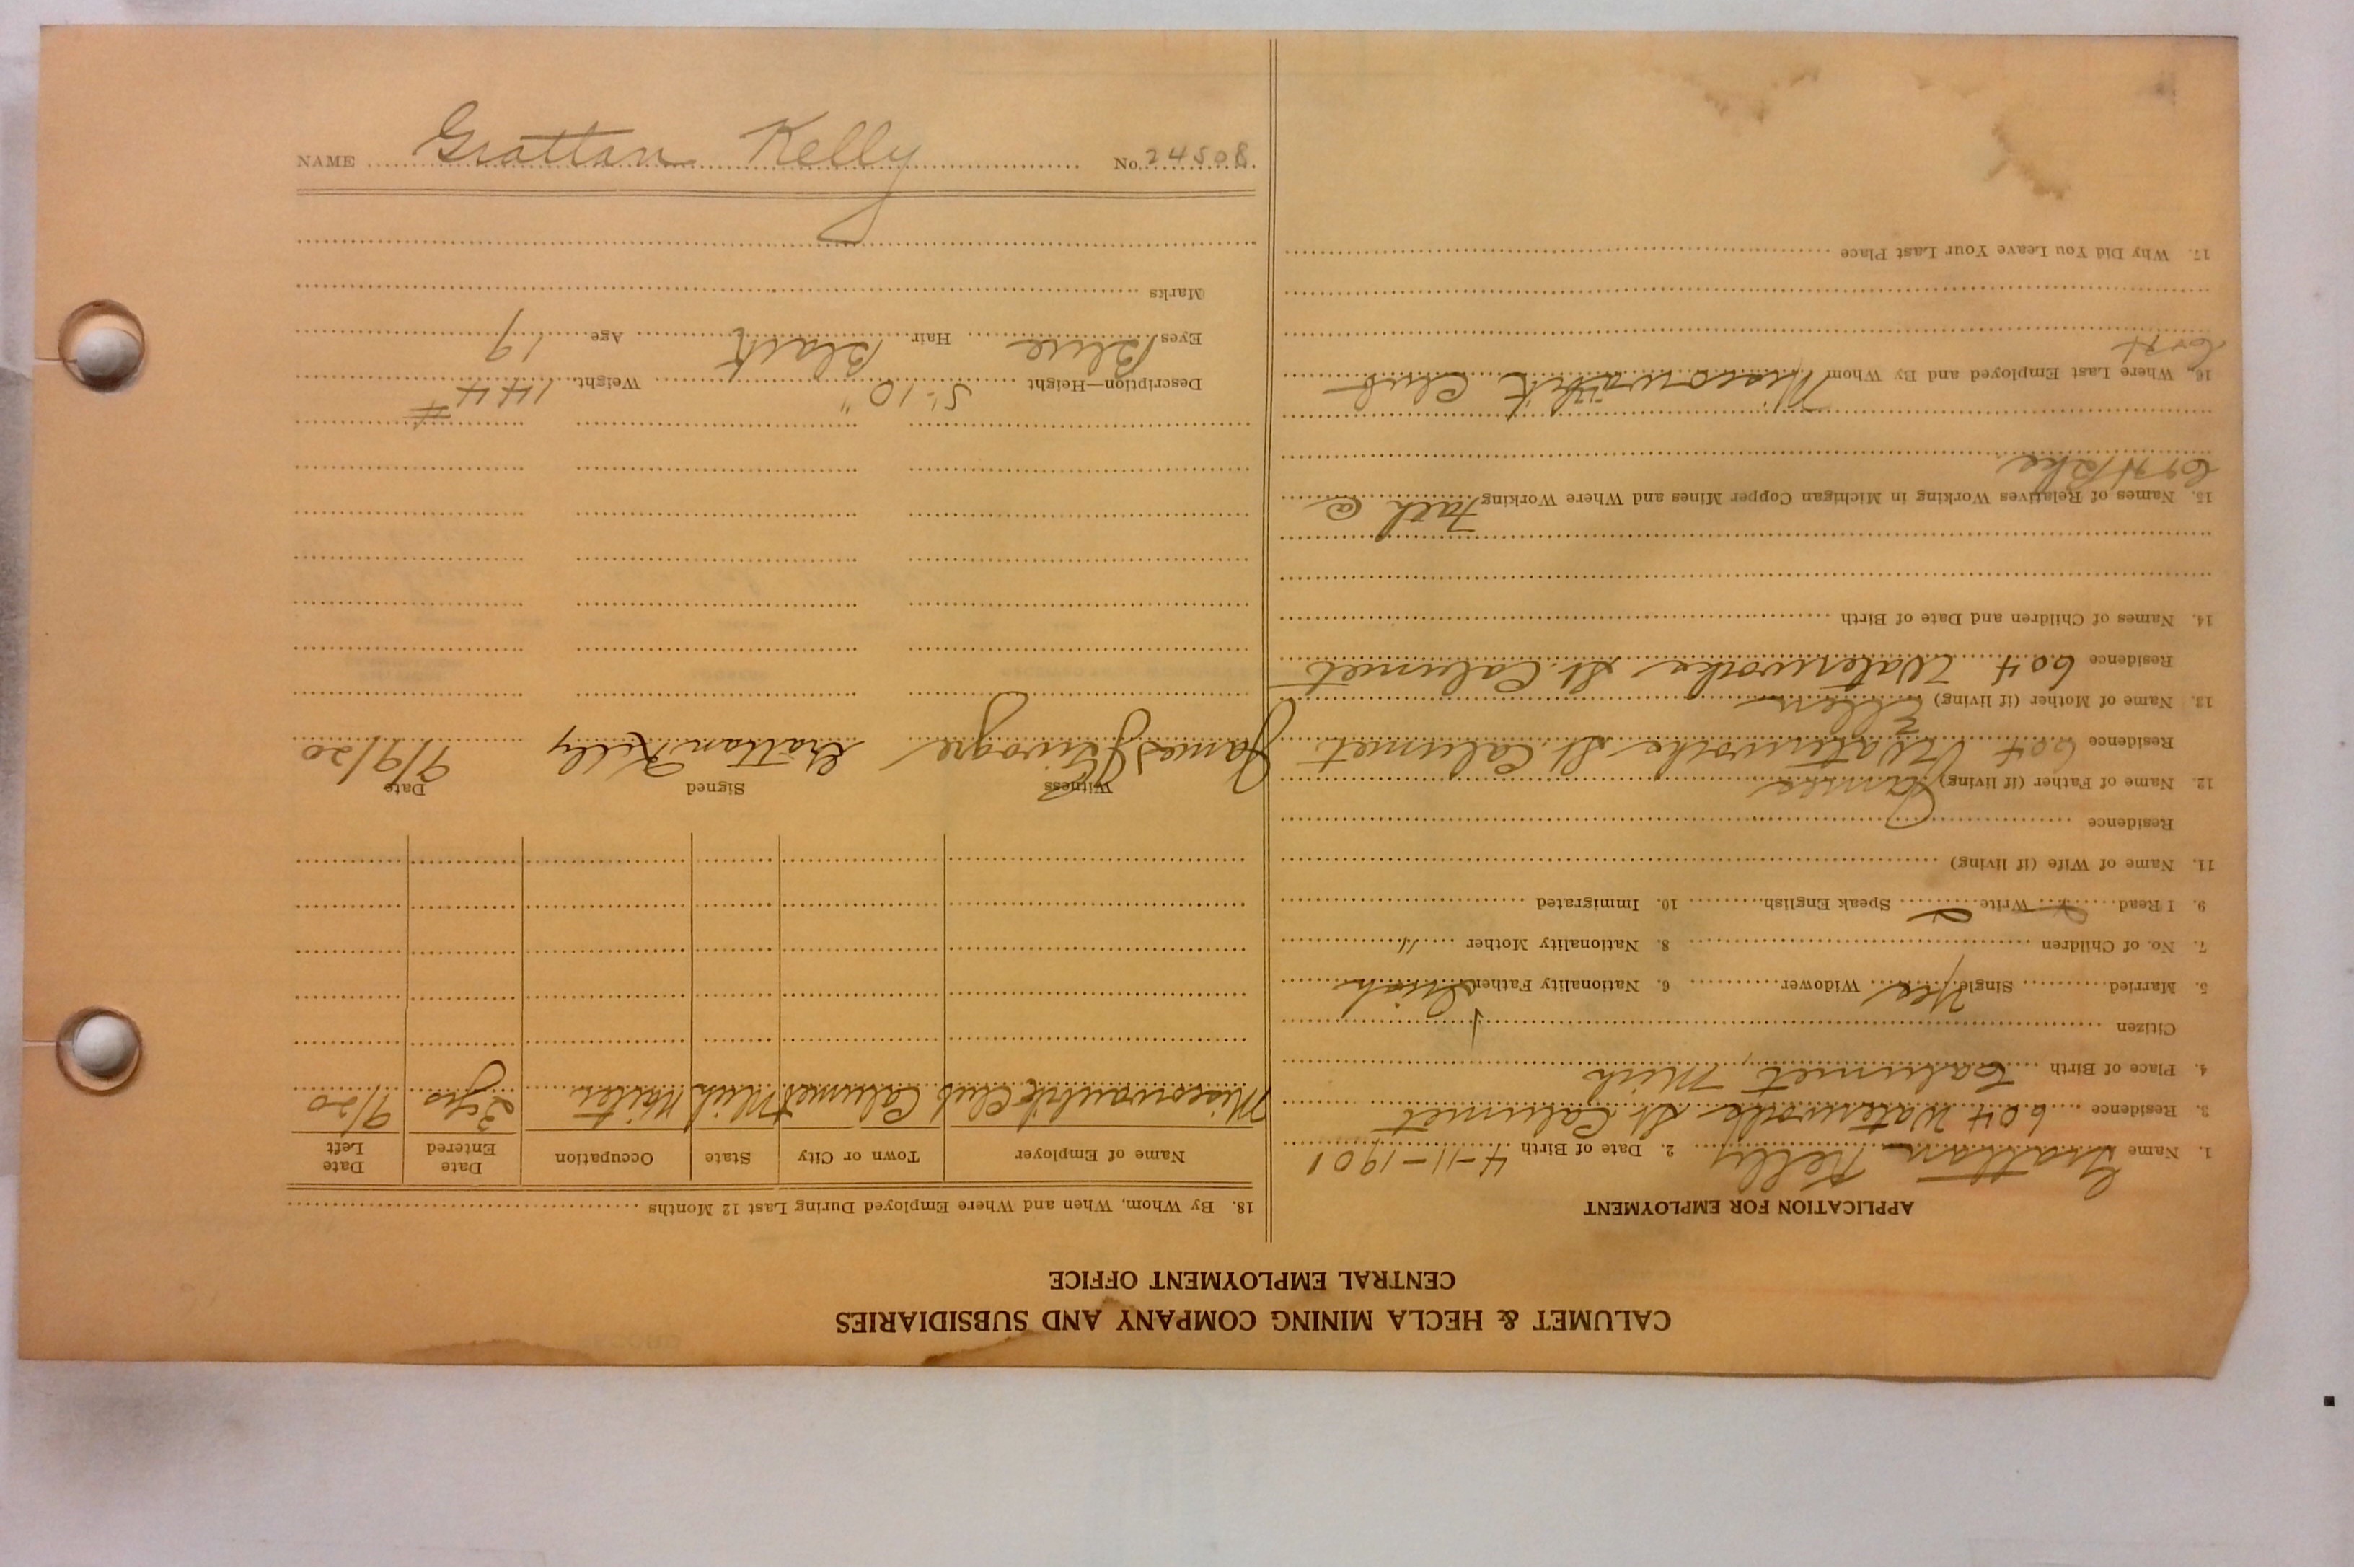 CALUMET & HECLA MINING COMPANY AND SUBSIDIARIES
CENTRAL EMPLOYMENT OFFICE
APPLICATION FOR EMPLOYMENT
1. Name Grattan Kelly 2. Date of Birth 4-11-1901
3. Residence 604 Waterworks St. Calumet
4. Place of Birth Calumet, Mich
Citizen
5. Married Single Yes Widower 6. Nationality Father Irish
7. No. of Children 8. Nationality Mother "
9. I Read Write Speak English 10. Immigrated
11. Name of Wife (if living)
Residence
12. Name of Father (if living) James
Residence 604 Waterworks St. Calumet
13. Name of Mother (if living) Ellen
Residence 604 Waterworks St. Calumet
14. Names of Children and Date of Birth
15. Names of Relatives Working in Michigan Copper Mines and Where Working Fath @
C & H
16. Where Last Employed and By Whom Miscowaubik Club
C & H
17. Why Did You Leave Your Last Place
18. By Whom, When and Where Employed During Last 12 Months
Name of Employer Town or City State Occupation Date Entered Date Left
Miscowaubik Club Calumet Mich Waiter 2 yrs 9/20
Witness Signed Date
James Grattan Kelly 9/9/20
Description—Height 5'-10" Weight 144 #
Eyes Blue Hair Black Age 19
Marks
NAME Grattan Kelly No. 24508